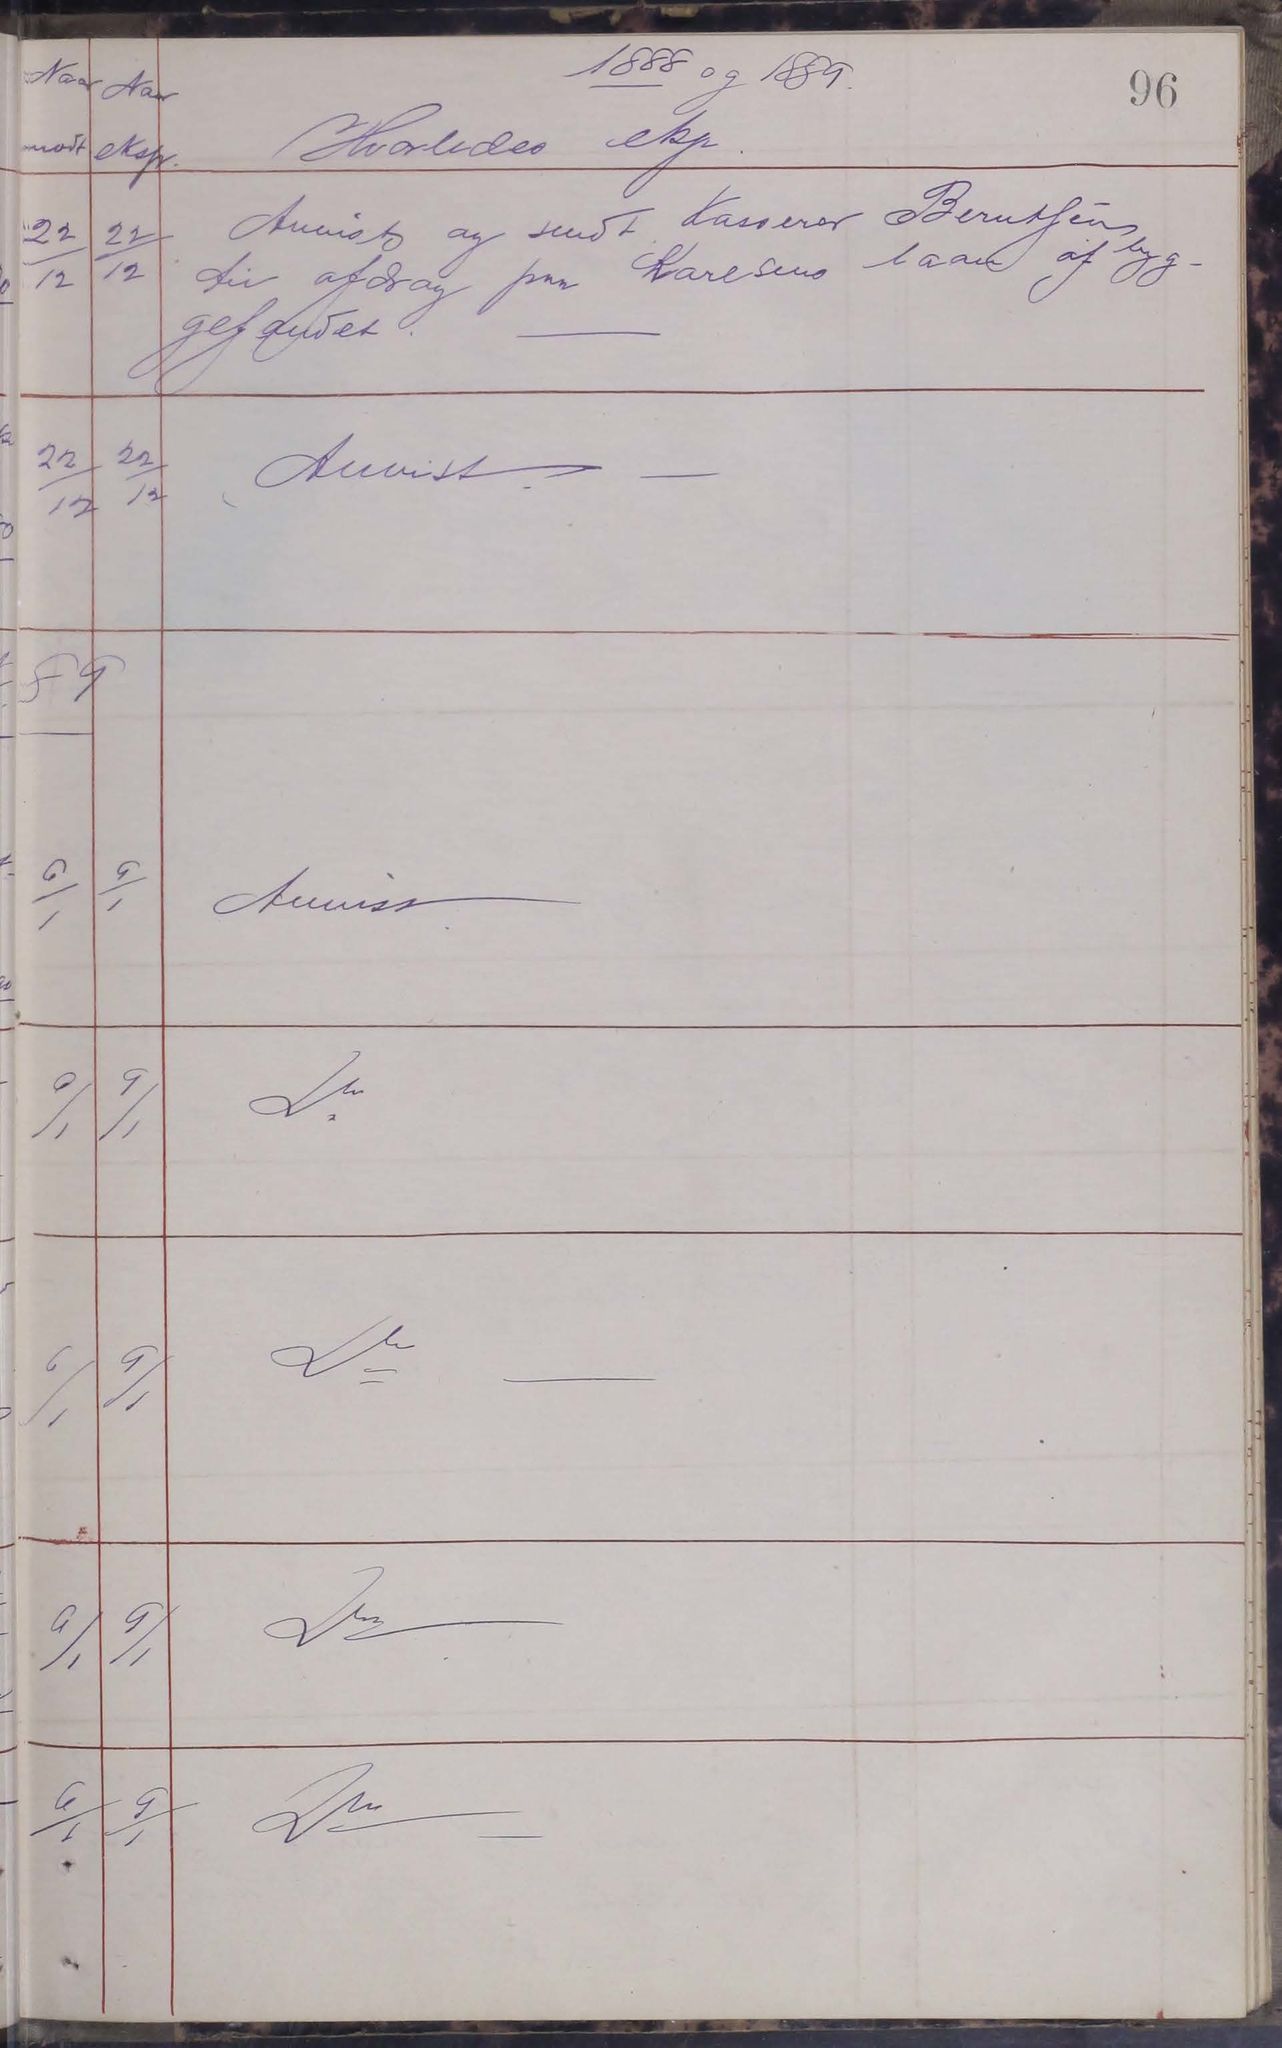 1888 og 1889.
96
Naar Naar
modt ekspr. Hvorledes eksp.
22/12 22/12 Anvist og sendt Kasserer Berntsen
til afdrag paa laan af byg-
gefondet.
22/12 22/12 Anvist
89
9/1 9/1 Anvist
9/1 9/1 Do
9/1 9/1 Do
9/1 9/1 Do
9/1 9/1 Do